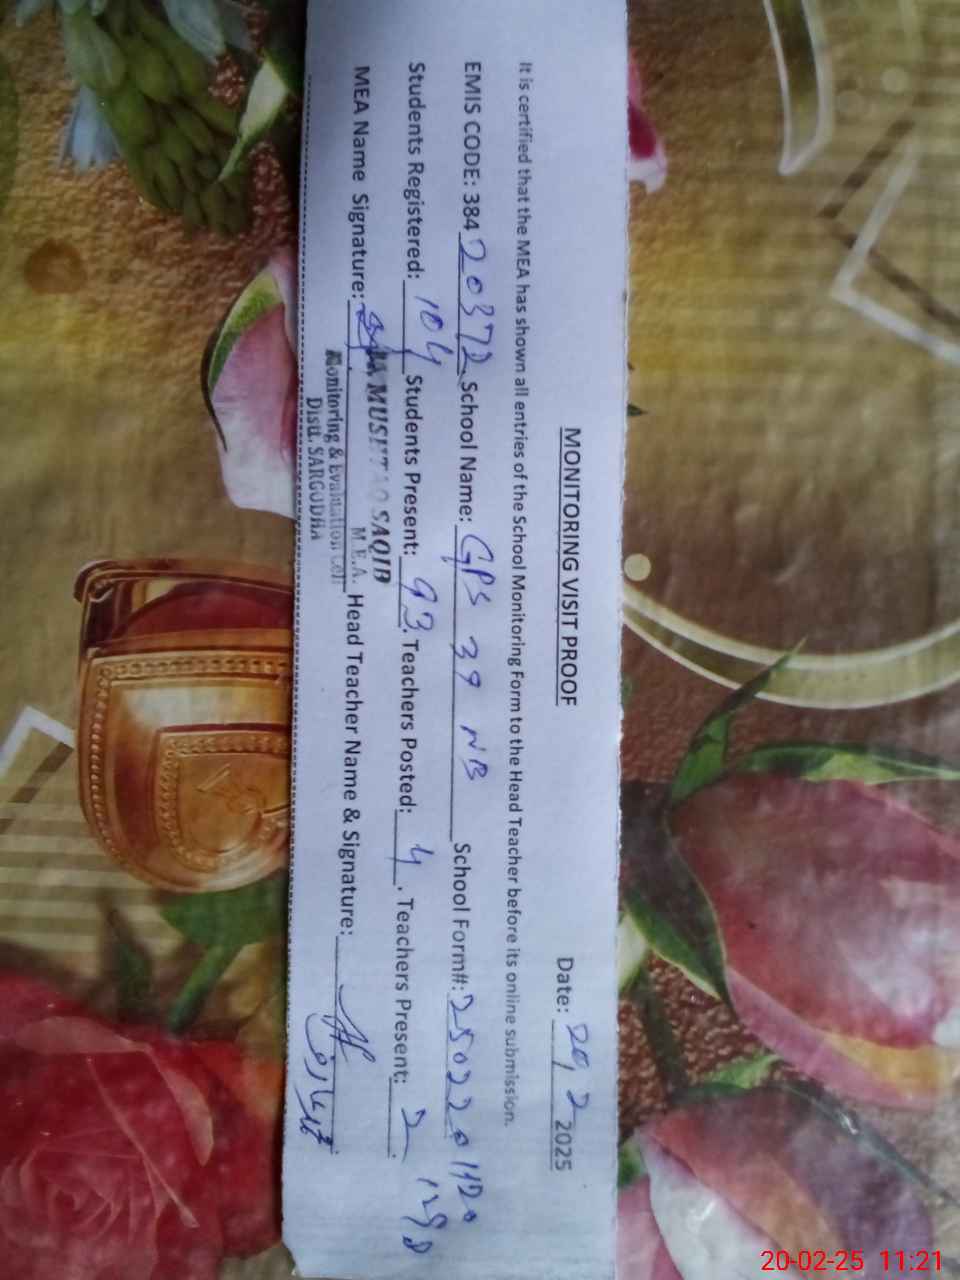 MONITORING VISIT PROOF
Date: 20, 2 2025
It is certified that the MEA has shown all entries of the School Monitoring Form to the Head Teacher before its online submission.
EMIS CODE: 384 20372 School Name: GPS 39 NB School Form#: 250220 1120
Students Registered: 104 Students Present: 93. Teachers Posted: 4. Teachers Present: 2.
MEA Name Signature: MUSHTAQ SAQIB Head Teacher Name & Signature:
M.E.A.
Monitoring & Evaluation Cell
Distt. SARGODHA
20-02-25 11:21